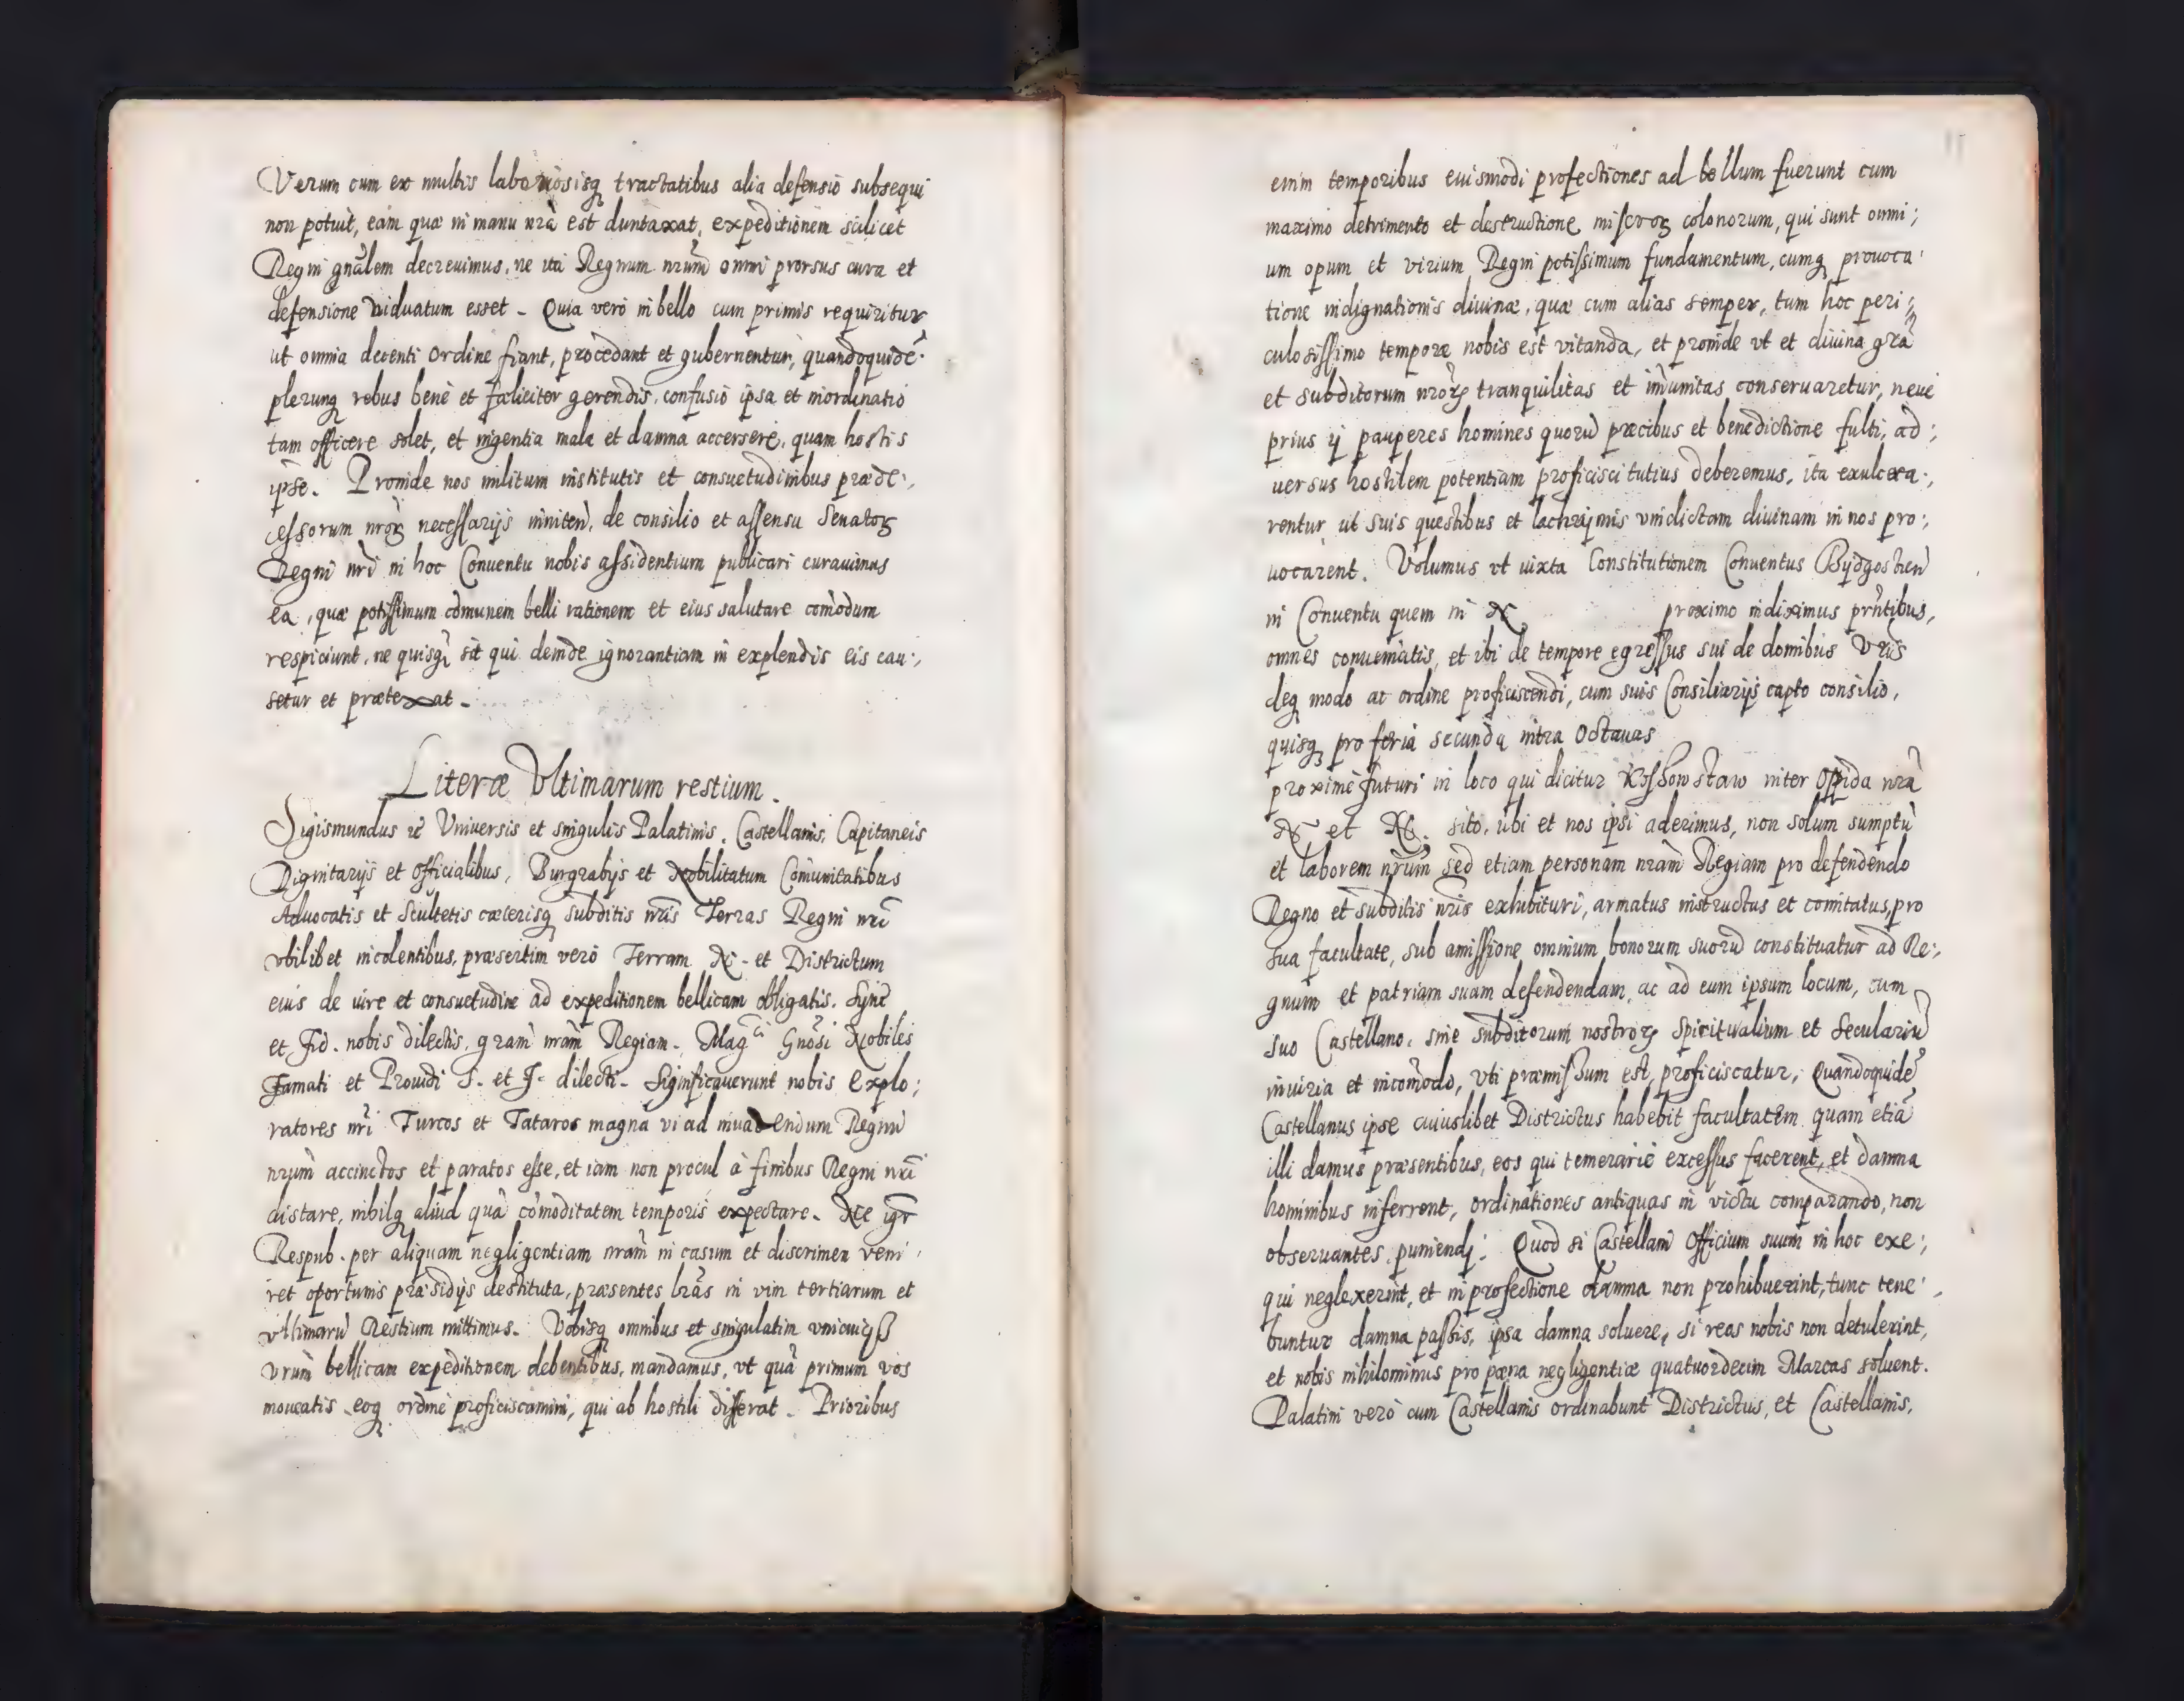 Verum cum ex multis laboriosisq tractatibus alia defensio subsequi
non potuit, eam quæ in manu nrã est duntaxat, expeditionem scilicet
Regni gnãlem decreuimus, ne ita Regnum nrũm omni prorsus cura et
defensione viduatum esset - Quia vero in bello cum primis requiritur
ut omnia decenti Ordine fiant, procedant et gubernentur, quandoquidẽ
plerunq rebus benè et fæliciter gerendis, confusio ipsa et inordinatio
tam officere solet, et ingentia mala et damna accersere, quam hostis
ipse. Proinde nos militum institutis et consuetudinibus præde:,
cessorum nrõrꝫ necessarijs inniten̄, de consilio et assensu Senatorꝫ
Regni nrĩ in hoc Conuentu nobis assidentium publicari curauimus
ea, quæ potissimum cõmunem belli rationem et eius salutare comõdum
respiciunt, ne quisq̃ sit qui deinde ignorantiam in explendis eis cau:,
setur et prætexat -
Literæ Vltimarum restium -
Sigismundus &c Vniuersis et singulis Palatinis, Castellanis, Capitaneis
Dignitarijs et Officialibus, Burgrabijs et Nobilitatum Cõmunitatibus
Aduocatis et Scultetis cæterisq subditis nrĩs Terras Regni nrĩ
vbilibet incolentibus, præsertim vero Terram N. et Districtum
eius de iure et consuetudine ad expeditionem bellicam obligatis. Synẽ
et Fid. nobis dilectis, grãm nrãm Regiam. Magci Gnõsi Nobiles
Famati et Prouidi S. et F. dilecti. Significauerunt nobis Explo:,
ratores nrĩ Turcos et Tataros magna vi ad inuadendum Regnũ
nrũm accinctos et paratos esse, et iam non procul à finibus Regni nrĩ
distare, nihilq aliud quã cõmoditatem temporis expectare. Ne igr̃
Respub. per aliquam negligentiam nrãm in casum et discrimen veni:
ret oportunis præsidijs destituta, præsentes lrãs in vim tertiarum et
vltimarũ Restium mittimus. Vobisq omnibus et singulatim vnicuiqß
vrũm bellicam expeditionem debentibus, mandamus, vt quã primum vos
moueatis eoq ordine proficiscamini, qui ab hostili differat. Prioribus
enim temporibus eiusmodi profectiones ad bellum fuerunt cum
maximo detrimento et destructione miserorꝫ colonorum, qui sunt omni:,
um opum et virium Regni potissimum fundamentum, cumq prouoca:
tione indignationis diuinæ, quæ cum alias semper, tum hoc peri:,
culosissimo tempore nobis est vitanda, et proinde vt et diuina grã
et subditorum nrõrꝫ tranquilitas et im̃unitas conseruaretur, neue
prius ij pauperes homines quorũ præcibus et benedictione fulti, ad:,
uersus hostilem potentiam proficisci tutius deberemus, ita exulcera:,
rentur, ut suis questibus et lachrijmis vindictam diuinam in nos pro:,
uocarent. Volumus vt iuxta Constitutionem Conuentus Bijdgostien̄
in Conuentu quem in N proximo indiximus prñtibus,
omnes conueniatis, et ibi de tempore egressus sui de domibus Vrĩs
deq modo ac ordine proficiscendi, cum suis Consiliarijs capto consilio,
quisq pro feria secunda intra Octauas
proximè futuri in loco qui dicitur inter Oppida nrã
N et N. sito, ubi et nos ipsi aderimus, non solum sumptũ
et laborem nrũm sed etiam personam nrãm Regiam pro defendendo
Regno et subditis nrĩs exhibituri, armatus instructus et comitatus, pro
sua facultate, sub amissione omnium bonorum suorũ constituatur ad Re:,
gnum et patriam suam defendendam, ac ad eum ipsum locum, cum
suo Castellano, sine subditorum nostrorꝫ Spiritualium et Seculariũ
iniuria et incomõdo, vti præmissum est, proficiscatur, Quandoquidẽ
Castellanus ipse cuiuslibet Districtus habebit facultatem quam etiã
illi damus præsentibus, eos qui temerariè excessus facerent, et damna
hominibus inferrent, ordinationes antiquas in victu comparando, non
obseruantes, puniendi: Quod si Castellani Officium suum in hoc exe:,
qui neglexerint, et in profectione damna non prohibuerint, tunc tene:,
buntur damna passis, ipsa damna soluere, si reos nobis non detulerint,
et nobis nihilominus pro pœna negligentiæ quatuordecim Marcas soluent.
Palatini verò cum Castellanis ordinabunt Districtus, et Castellanis,